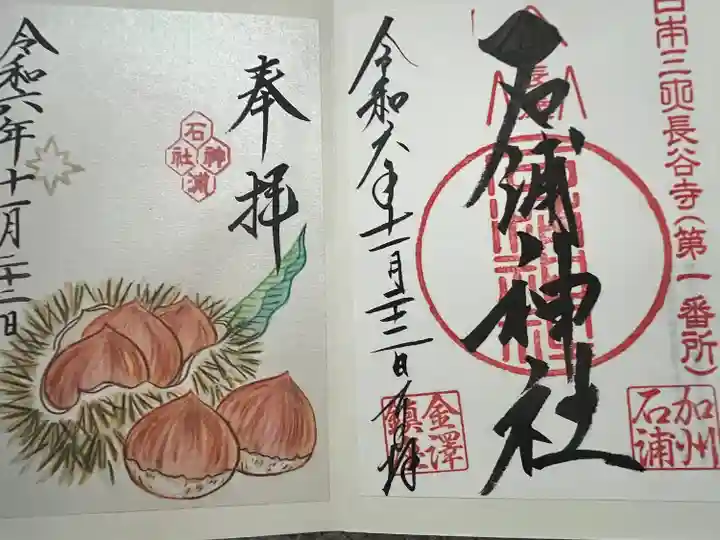 日本三所長谷寺(第一番所)
石浦神社
加州
石浦
令和六年十一月二十二日 奉拝
金澤
鎮
奉拝
石浦神社
令和六年十一月二十二日